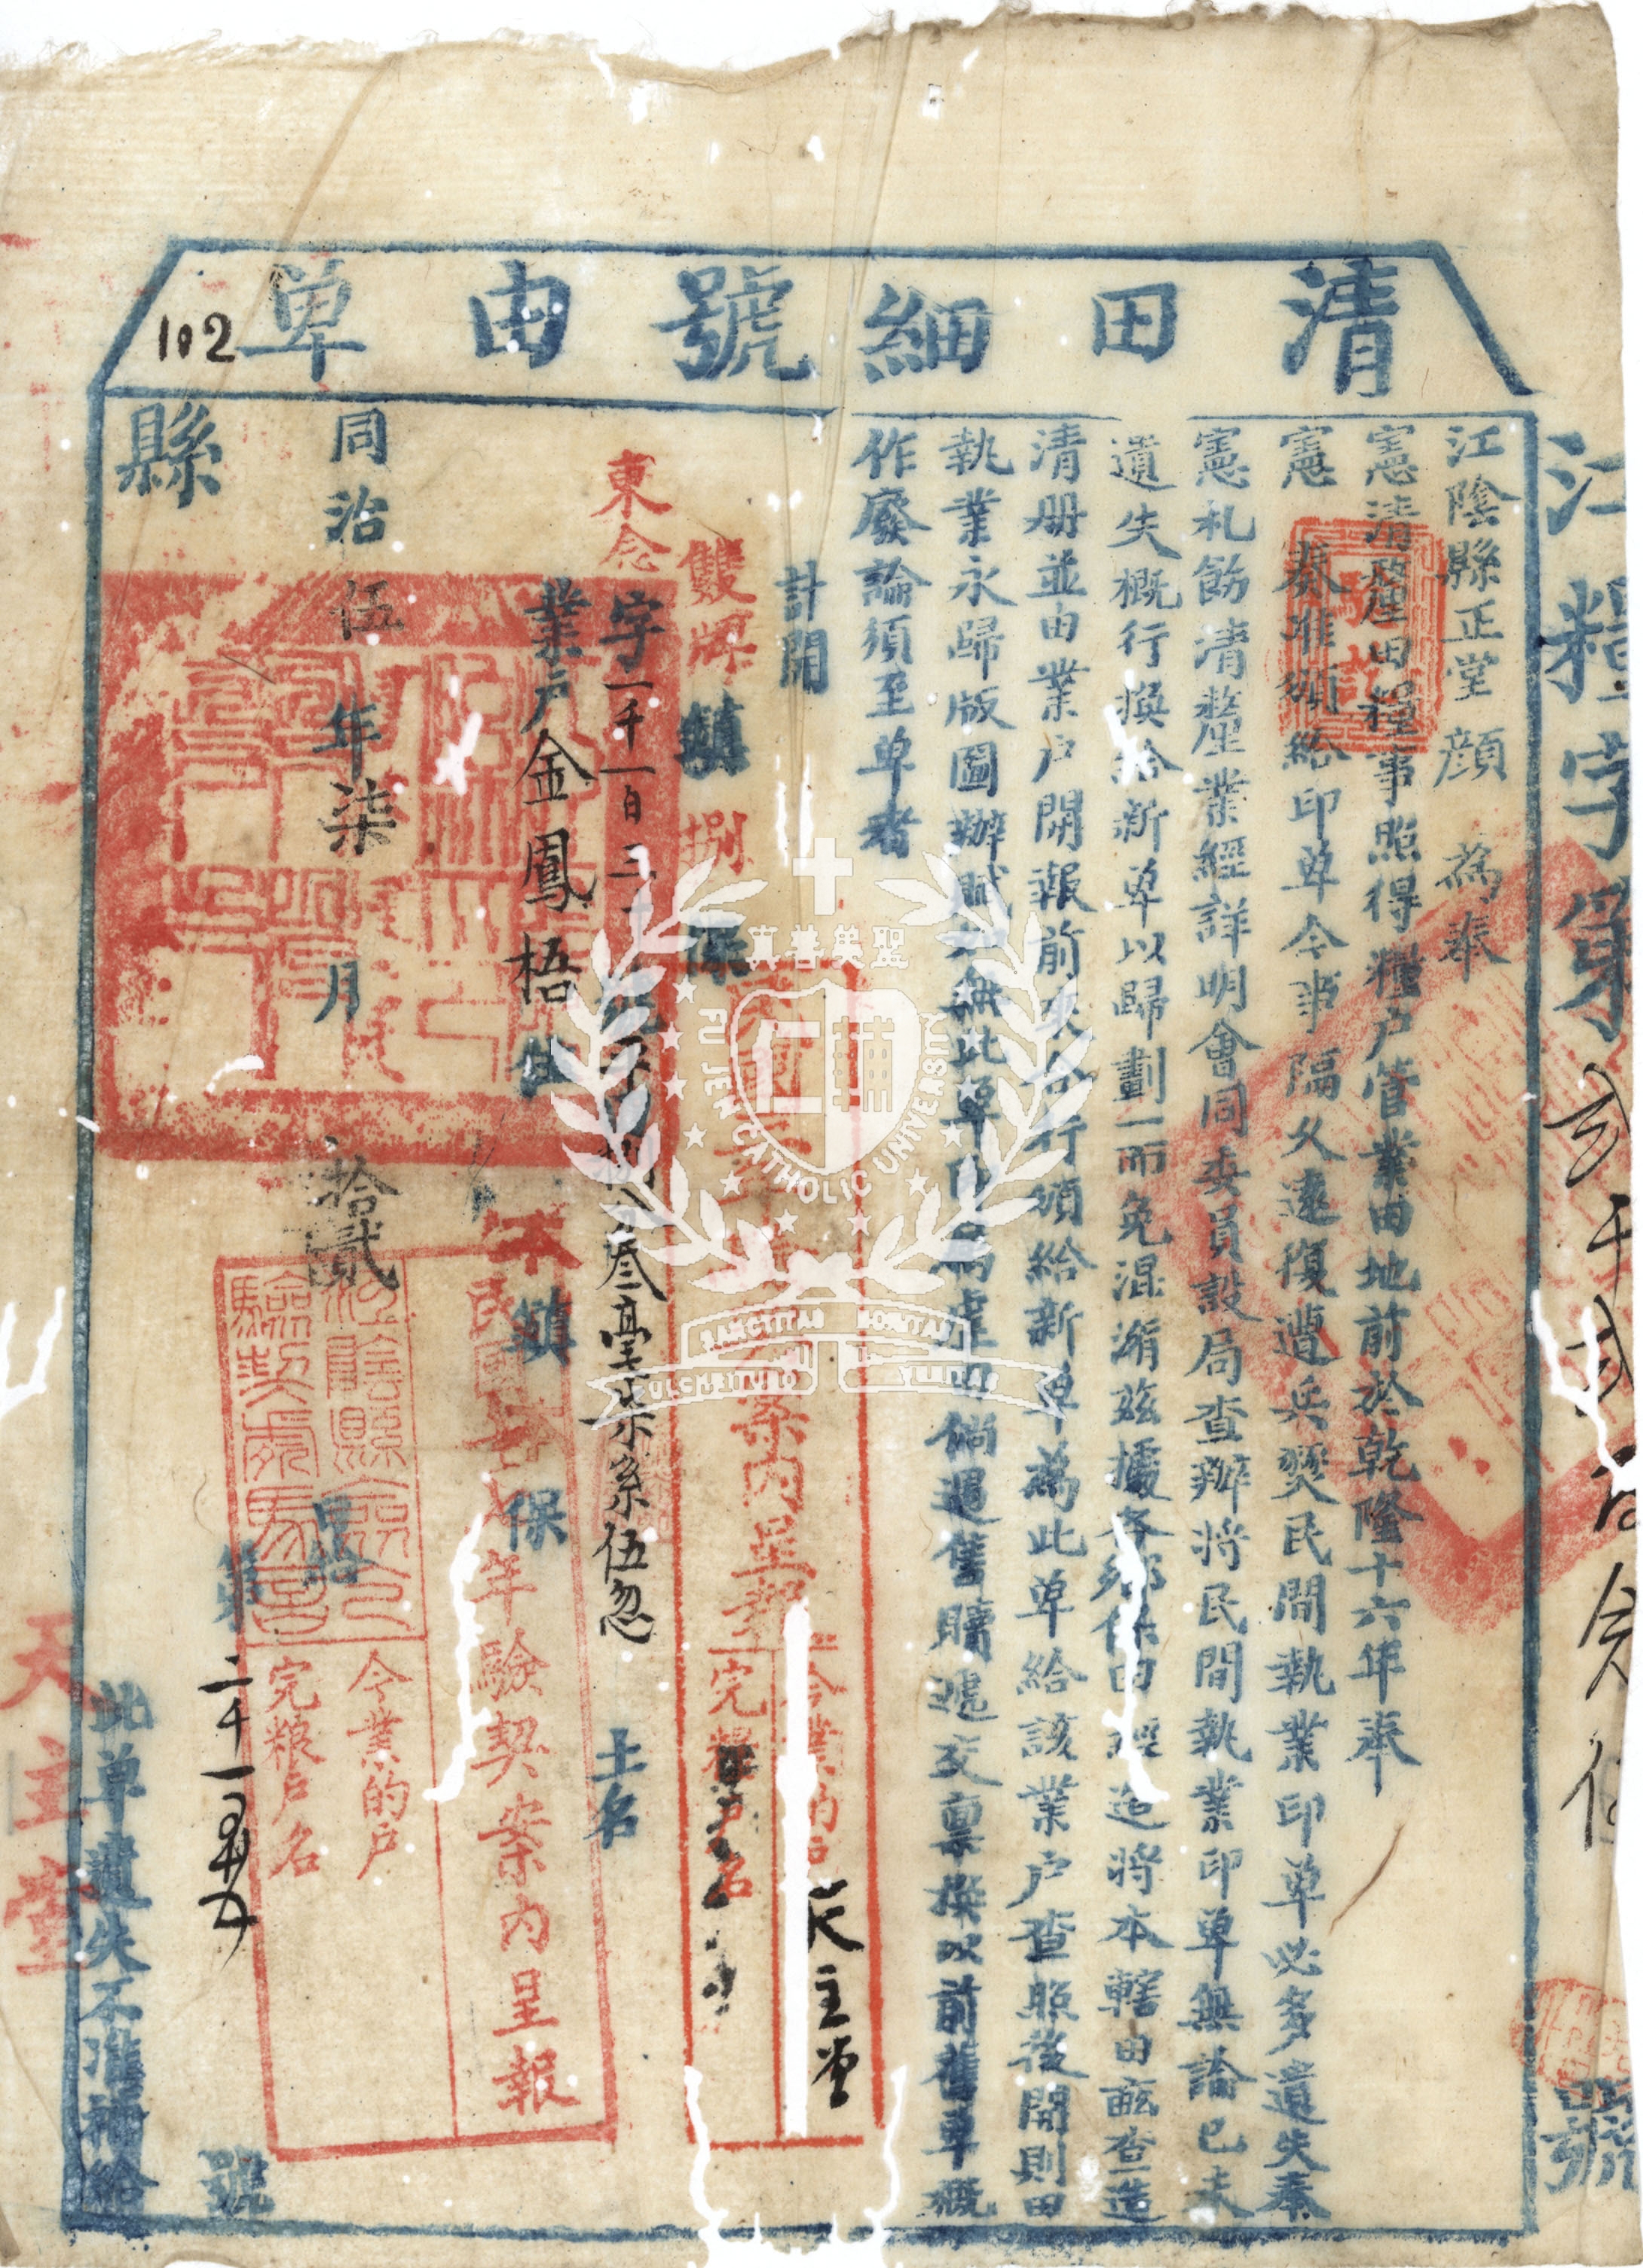 清田細號由單
江陰縣正堂顏 為奉
憲清釐田糧事照得糧戶管業由地前於乾隆十六年奉
憲 奏准頒給印單今事隔久遠復遭兵燹民間執業印單必多遺失奉
憲札飭清釐業經詳明會同委員設局查辦將民間執業印單無論已未
遺失概行換給新單以歸劃一而免混淆茲據各鄉保由經造將本轄田畝查造
清册並由業戶開報前來合行頒給新單為此單給該業戶查照後開則田
執業永歸版圖辦賦如無此單即為虛田倘遇售賣遞交稟換以前舊單概
作廢論須至單者
計開
雙牌鎮捌保
東念字一千一百三十
業戶金鳳梧住
鎮
保
土名
叁毫柒絲伍忽
同治伍年柒月拾貳日給
縣
第二千一百
號
此單遺失不准補給
江糧字第弍千弍百
號
102
民國
年驗契案內呈報
今業的戶
完糧戶名
江陰縣
驗契處
案內呈報
今業的戶 天主堂
完糧戶名
天主堂
聖美善真
FU JEN CATHOLIC UNIVERSITY
SANCTITAS BONITAS
PULCHRITUDO VERITAS